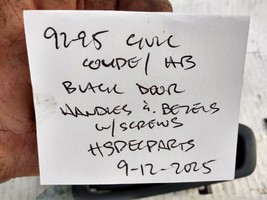 92-95 CIVIC
COUPE/HB
BLACK DOOR
HANDLES & BEZELS
W/SCREWS
HSPECPARTS
9-12-2025